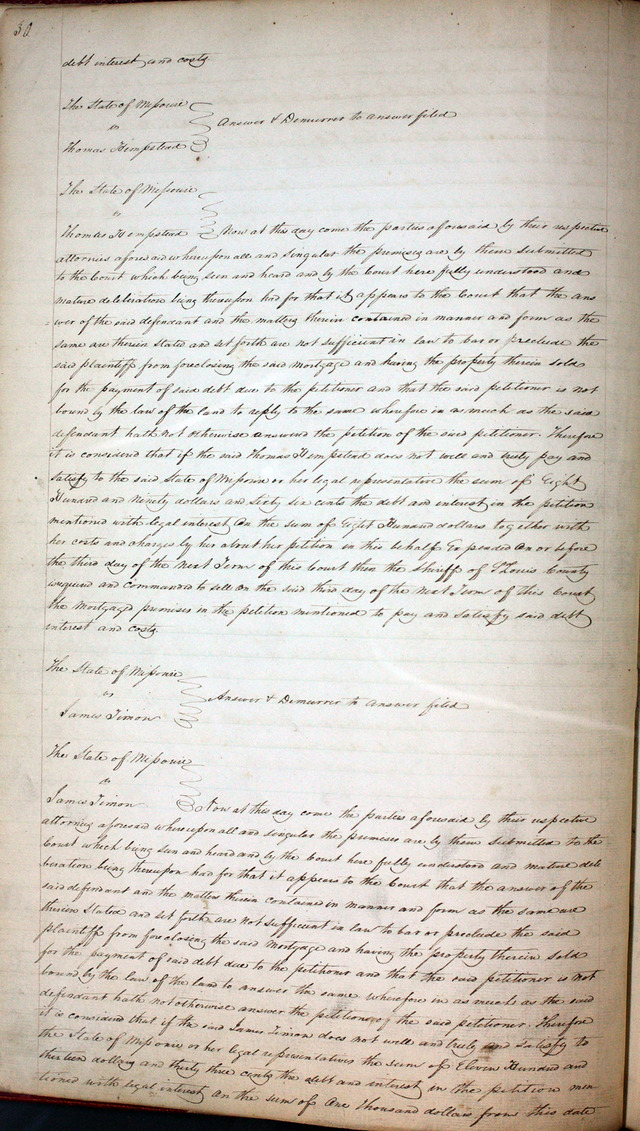 30.
debt interest and costs
The State of Missouri
vs
Thomas Hempstead
Answer & Demurrer to answer filed
The State of Missouri
vs
Thomas Hempstead Now at this day come the parties aforesaid by their respective
attornies aforesaid whereupon all and singular the premises are by them submitted
to the Court which being seen and heard and by the Court here fully understood and
mature deleberation being thereupon had for that it appears to the Court that the ans
wer of the said defendant and the matters therein contained in manner and form as the
same are therein stated and set forth are not sufficient in law to bar or preclude the
said plaintiff from foreclosing the said Mortgage and having the property therein sold
for the payment of said debt due to the petitioner and that the said petitioner is not
bound by the law of the land to reply to the same wherefore in as much as the said
defendant hath not otherwise answerd the petition of the said petitioner. Therefore
it is considerd that if the said Thomas Hempstead does not well and truly pay and
satisfy to the said State of Missouri or her legal representative the sum of Eight
Hundred and Ninety dollars and Sixty six cents the debt and interest in the petition
mentioned with legal interest on the sum of Eight Hundred dollars together with
her costs and charges by her about her petition in this behalf Expended on or before
the third day of the next Term of this Court then the Sheriff of St Louis County
required and commanded to sell on the said third day of the next Term of this Court
the Mortgaged premises in the petition mentioned to pay and satisfy said debt
interest and costs.
The State of Missouri
vs
James Timon
Answer & Demurrer to answer filed
The State of Missouri
vs
James Timon Now at this day come the parties aforesaid by their respective
attornies aforesaid whereupon all and singular the premises are by them submitted to the
Court which being seen and heard and by the Court here fully understood and mature dele
beration being thereupon had for that it appears to the Court that the answer of the
said defendant and the matters therein contained in manner and form as the same are
therein stated and set forth are not sufficient in law to bar or preclude the said
plaintiff from foreclosing the said Mortgage and having the property therein sold
for the payment of said debt due to the petitioner and that the said petitioner is not
bound by the law of the land to answer the same wherefore in as much as the said
defendant hath not otherwise answer the petition of the said petitioner. Therefore
it is considerd that if the said James Timon does not well and truly and satisfy to
the State of Missouri or her legal representatives the sum of Eleven Hundred and
thirteen dollars and thirty three cents the debt and interest in the petition men
tioned with legal interest on the sum of One thousand dollars from this date